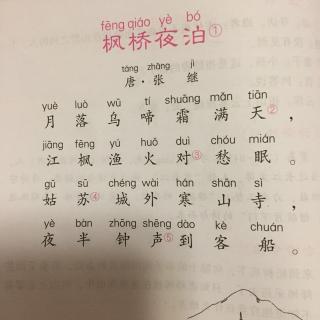 fēng qiáo yè bó
枫桥夜泊①
táng zhāng jì
唐·张继
yuè luò wū tí shuāng mǎn tiān
月落乌啼霜满天②，
jiāng fēng yú huǒ duì chóu mián
江枫渔火对③愁眠。
gū sū chéng wài hán shān sì
姑苏④城外寒山寺，
yè bàn zhōng shēng dào kè chuán
夜半钟声⑤到客船。